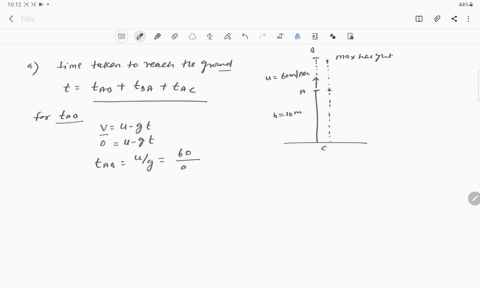 10:12
44%
Title
a) time taken to reach the ground
t = tAB + tBA + tAC
for tAB
V = u - gt
0 = u - gt
tAB = u/g = 60
B
max height
u = 60m/sec
A
h = 10m
C